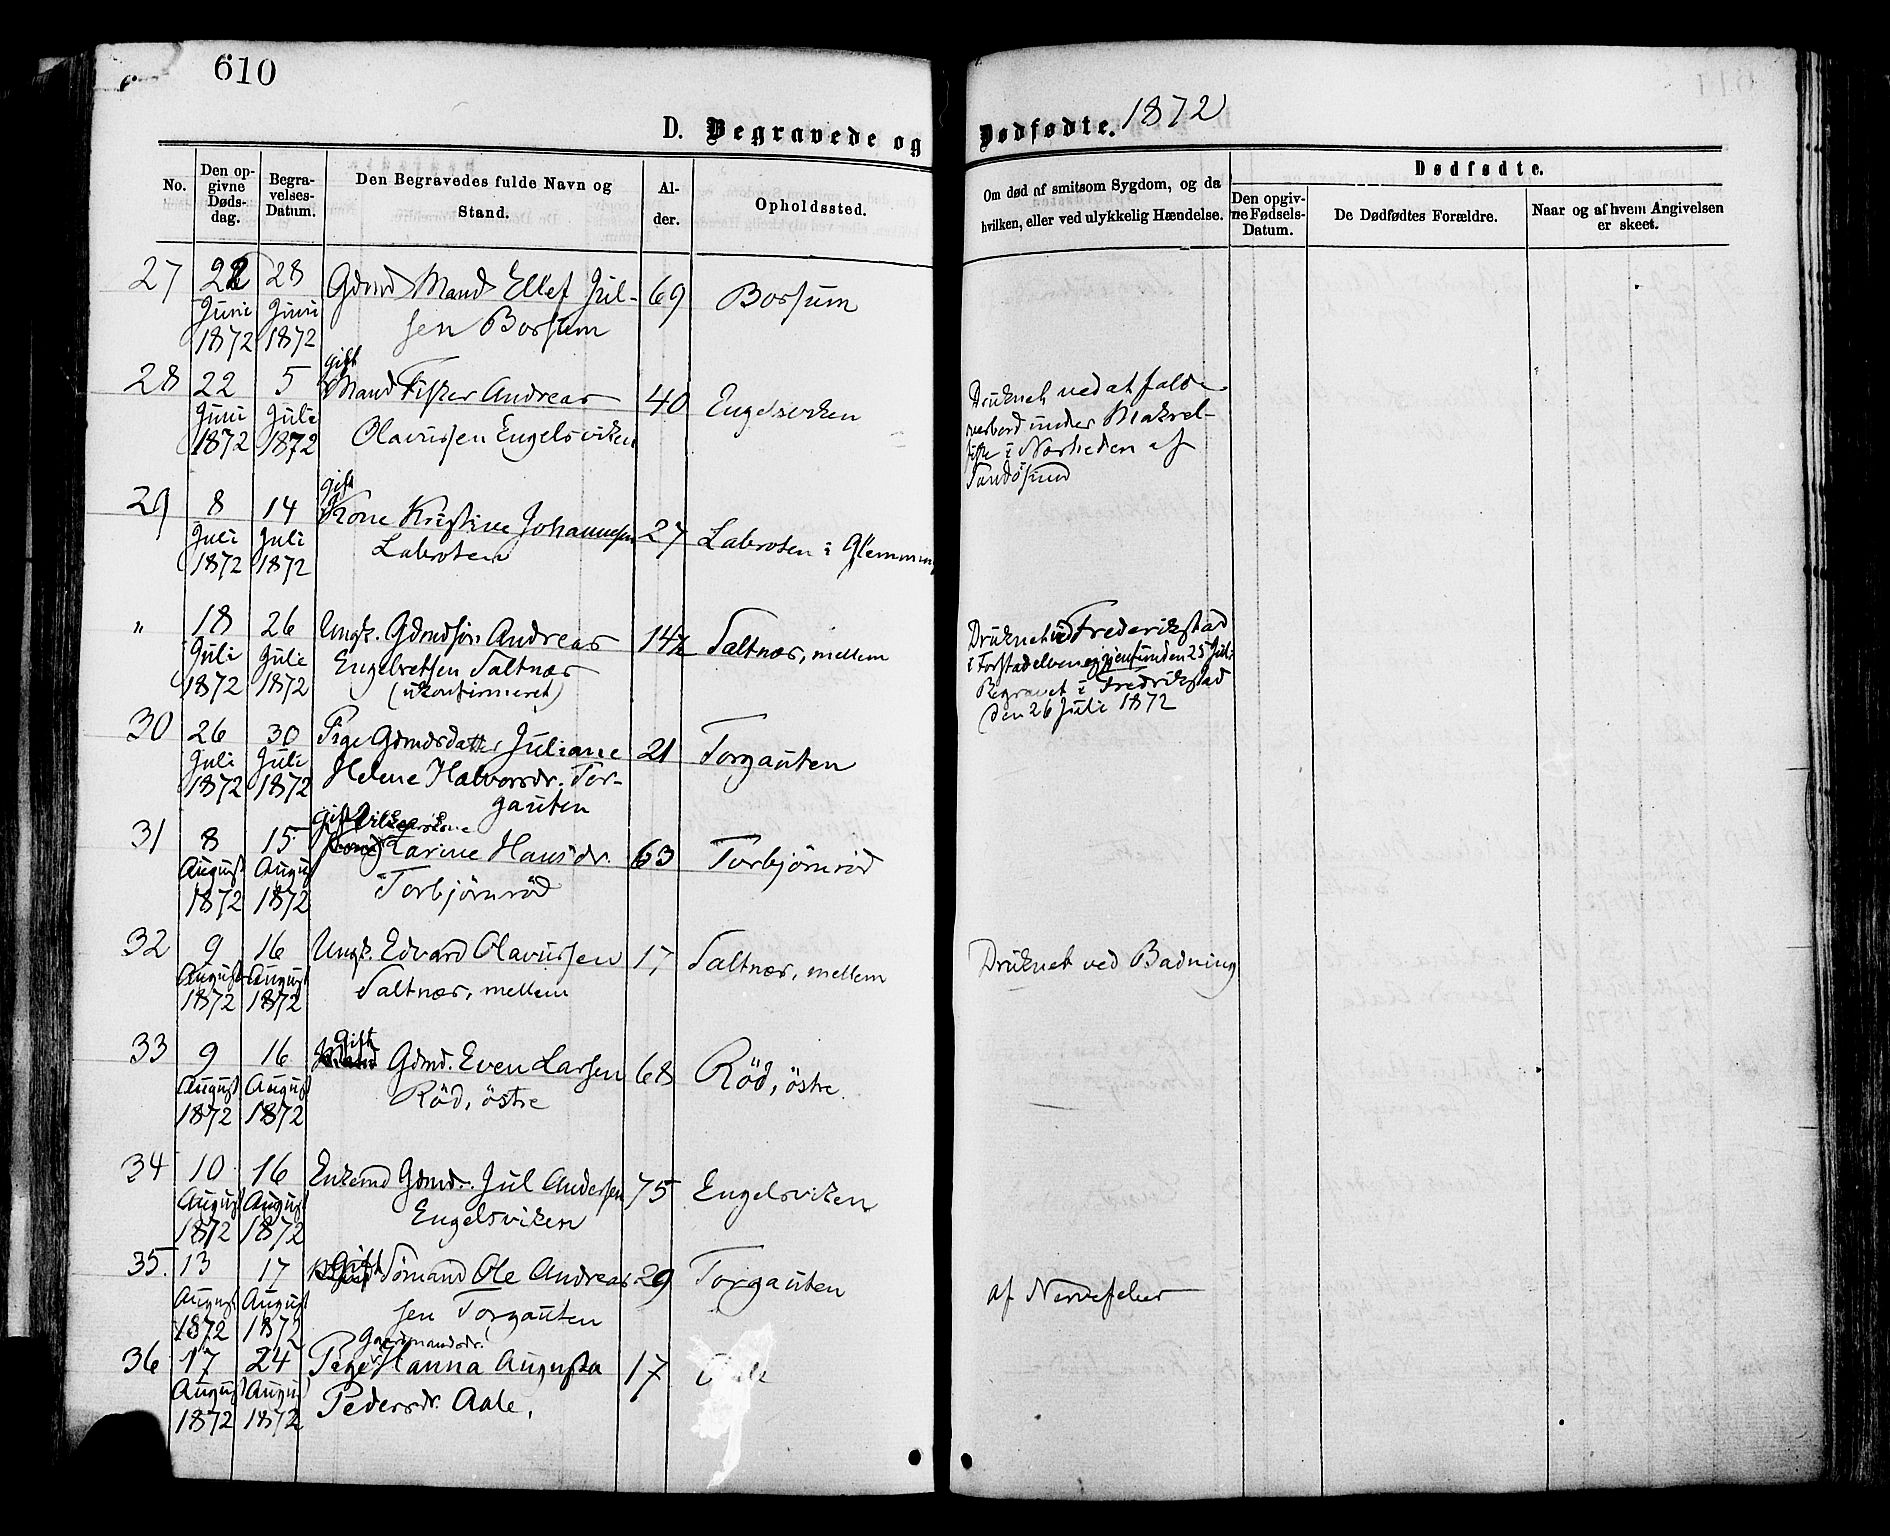 610
D. Begravede og Dødfødte. 1872
No.
Den opgivne Dødsdag.
Begravelses-Datum.
Den Begravedes fulde Navn og Stand.
Alder.
Opholdssted.
Om død af smitsom Sygdom, og da hvilken, eller ved ulykkelig Hændelse.
Dødfødte.
Den opgivne Fødsels-Datum.
De Dødfødtes Forældre.
Naar og af hvem Angivelsen er skeet.
27 22 28 Gdmd Mand Ellef Jul- 69 Borsum
Juni Juni sen Borsum
1872 1872
gift
28 22 5 Mand Fisker Andreas 40 Engelsviken Druknet ved at falde
Juni Juli Olavussen Engelsviken overbord under Makrel-
1872 1872 fiske i Nærheden af
Sandösund
gift
29 8 14 Kone Kristine Johannesen 27 Labroten i Glemminge
Juli Juli Labroten
1872 1872
" 18 26 Ungk. Gdmdsön Andreas 14½ Saltnær, mellem Druknet ved Frederikstad
Juli Juli Engelretsen Saltnær i Forstadelven igjenfunden 25 Juli
1872 1872 (ukonfirmeret) Begravet i Fredrikstad
den 26 Juli 1872
30 26 30 Pige Gdmdsdatter Juliane 21 Torgauten
Juli Juli Helene Halvorsdr. Tor-
1872 1872 gauten
gift
31 8 15 Karine Hansdr. 63 Torbjörnröd
August August Torbjörnröd
1872 1872
32 9 16 Ungk. Edvard Olavussen 17 Saltnær, mellem Druknet ved Badning
August August Saltnær, mellem
1872 1872
Gift
33 9 16 Gdmd. Even Larsen 68 Röd, östre
August August Röd, östre
1872 1872
34 10 16 Enkemd Gdmd. Jul Andersen 75 Engelsviken
August August Engelsviken
1872 1872
35. 13 17 Gift Sömand Ole Andreas 29 Torgauten af Nervefeber
August August sen Torgauten
1872 1872 Gaardmandsdr.
36 17 24 Pige Hanna Augusta 17
August August Pedersdr. Aale.
1872 1872